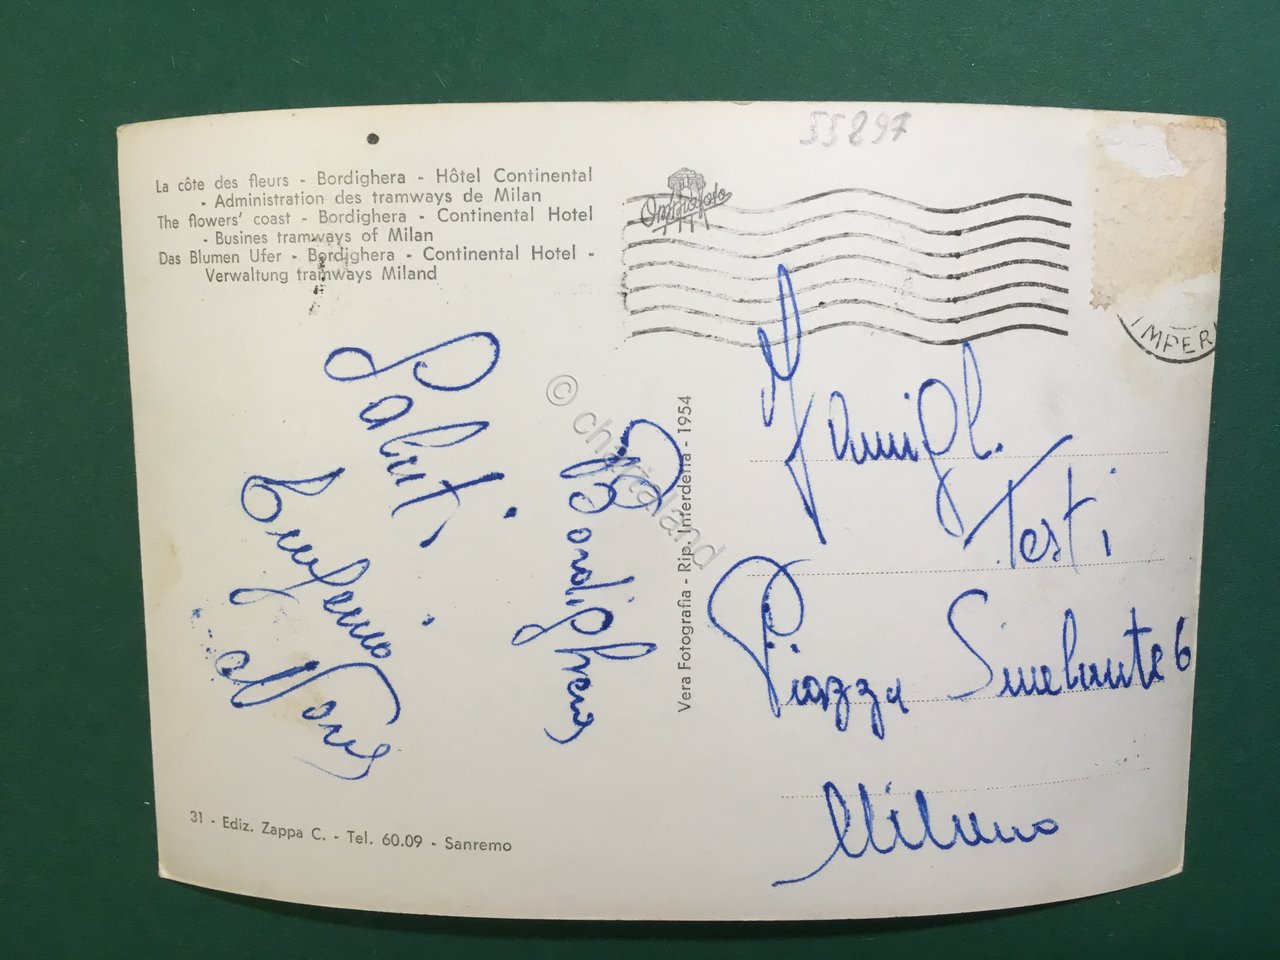 55297
La côte des fleurs - Bordighera - Hôtel Continental
- Administration des tramways de Milan
The flowers' coast - Bordighera - Continental Hotel
- Busines tramways of Milan
Das Blumen Ufer - Bordighera - Continental Hotel -
Verwaltung tramways Miland
IMPER
Saluti
Bordighera
Vera Fotografia - Rip. interdetta - 1954
Famigl.
Testi
Piazza 6
Milano
31 - Ediz. Zappa C. - Tel. 60.09 - Sanremo
© chartaland